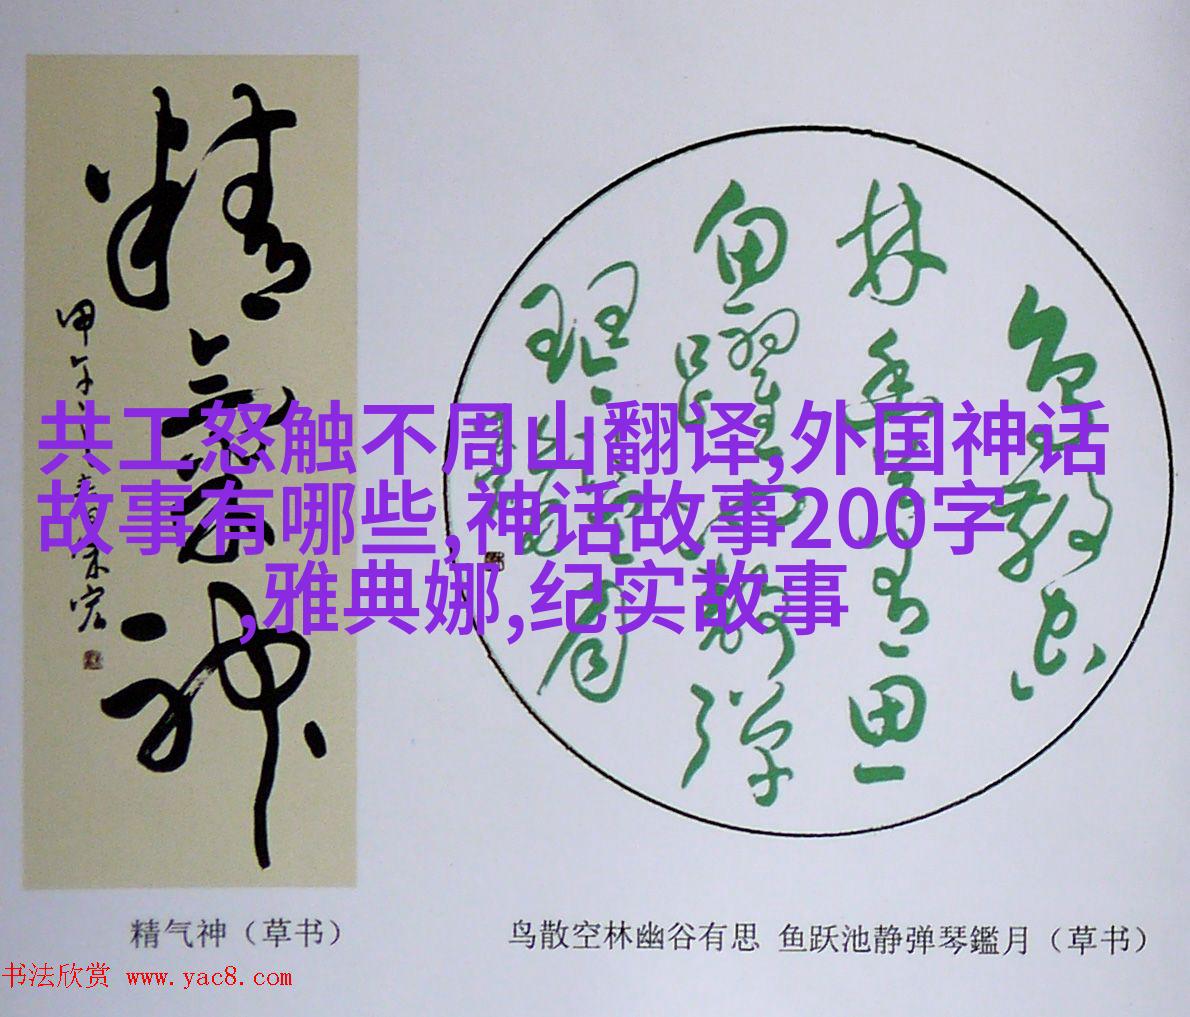 精氣神
甲午
共工怒触不周山翻译,外国神话
故事有哪些,神话故事200字
,雅典娜,纪实故事
鸟散空
林幽谷有思
鱼跃池静弹
琴鑑月
精气神（草书）
鸟散空林幽谷有思 鱼跃池静弹琴鑑月（草书）
书法欣赏 www.yac8.com